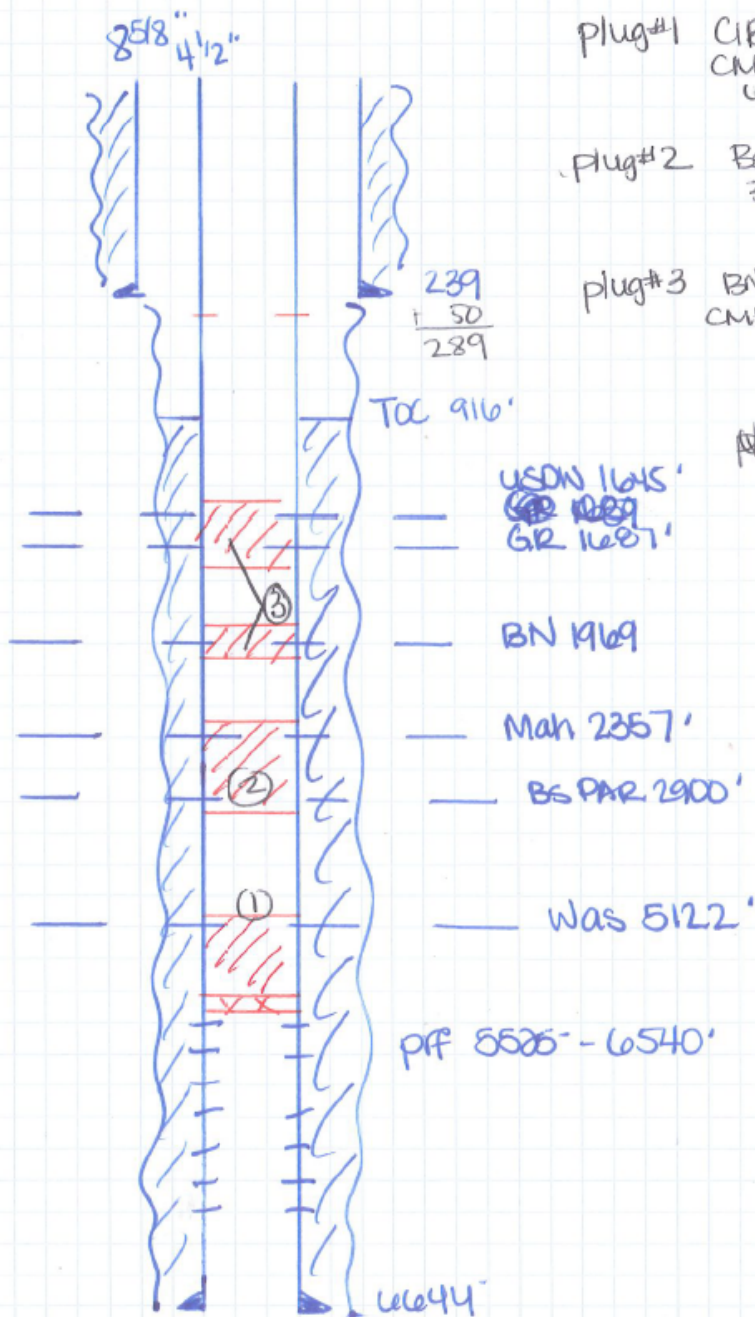 8 5/8" 4 1/2"
plug#1 CIB
CM
plug#2
239
+ 50
289
plug#3 BN
CM
TOC 916'
USDW 1645'
GR 1687'
③
BN 1969
Mah 2357'
②
BS PAR 2900'
①
Was 5122'
X X
prf 5525' - 6540'
6644'